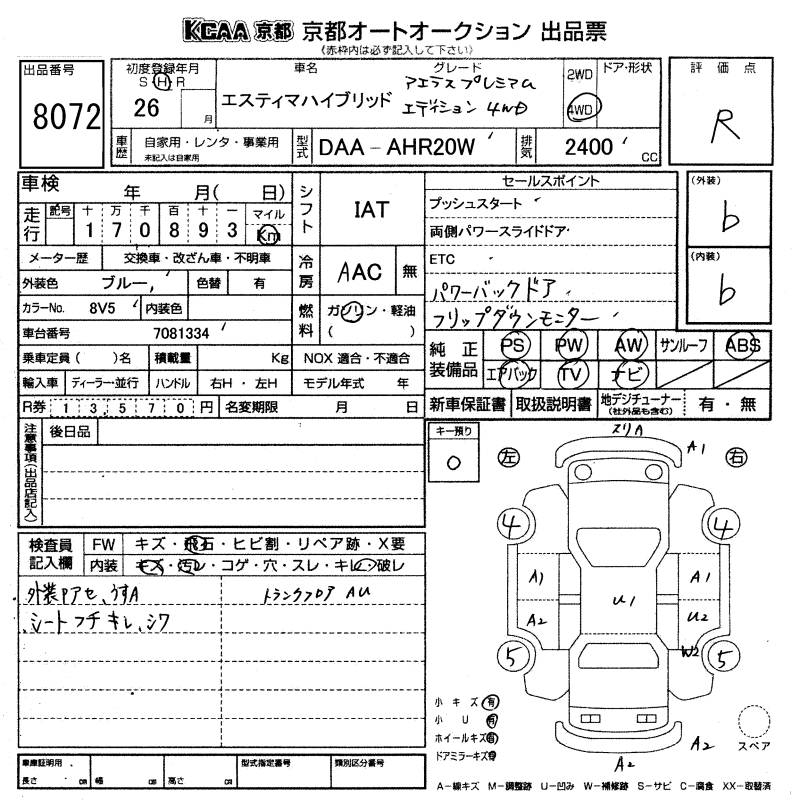 KCAA 京都 京都オートオークション 出品票
(赤枠内は必ず記入して下さい)
出品番号
8072
初度登録年月
S H R
26 月
車名
エスティマハイブリッド
グレード
アエラス プレミアム
エディション 4WD
2WD
4WD
ドア・形状
評価点
R
車歴
自家用・レンタ・事業用
未記入は自家用
型式
DAA-AHR20W
排気
2400 CC
車検 年 月( 日)
走行
記号 十 万 千 百 十 一 マイル
1 7 0 8 9 3 Km
メーター歴 交換車・改ざん車・不明車
外装色 ブルー 色替 有
カラーNo. 8V5 内装色
車台番号 7081334
乗車定員( )名 積載量 Kg NOX 適合・不適合
輸入車 ディーラー・並行 ハンドル 右H・左H モデル年式 年
R券 13,570円 名変期限 月 日
シフト IAT
冷房 AAC 無
燃料 ガソリン・軽油
( )
セールスポイント
プッシュスタート
両側パワースライドドア
ETC
パワーバックドア
フリップダウンモニター
(外装)
b
(内装)
b
純正装備品
PS PW AW サンルーフ ABS
エアバック TV ナビ
新車保証書 取扱説明書 地デジチューナー (社外品も含む) 有・無
注意事項(出品店記入)
後日品
キー預り
0
左
右
スリA
A1
4
4
A1
A1
U1
A2
U2
W2
5
5
A2
A2
スペア
検査員記入欄
FW キズ・飛石・ヒビ割・リペア跡・X要
内装 キズ・汚レ・コゲ・穴・スレ・キレ・破レ
外装Pアセ、うすA
トランクフロア AU
シート フチ キレ、シワ
小キズ 有
小U 有
ホイールキズ 有
ドアミラーキズ 有
車庫証明用
長さ cm 幅 cm 高さ cm
型式指定番号
類別区分番号
A-線キズ M-調整跡 U-凹み W-補修跡 S-サビ C-腐食 XX-取替済